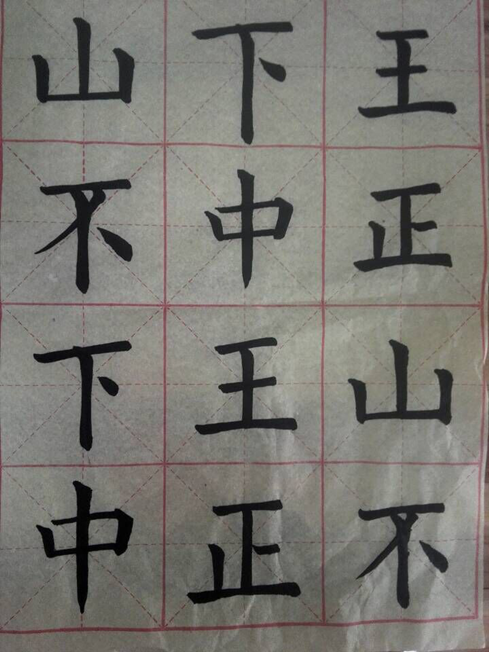 王正山不
下中王正
山不下中